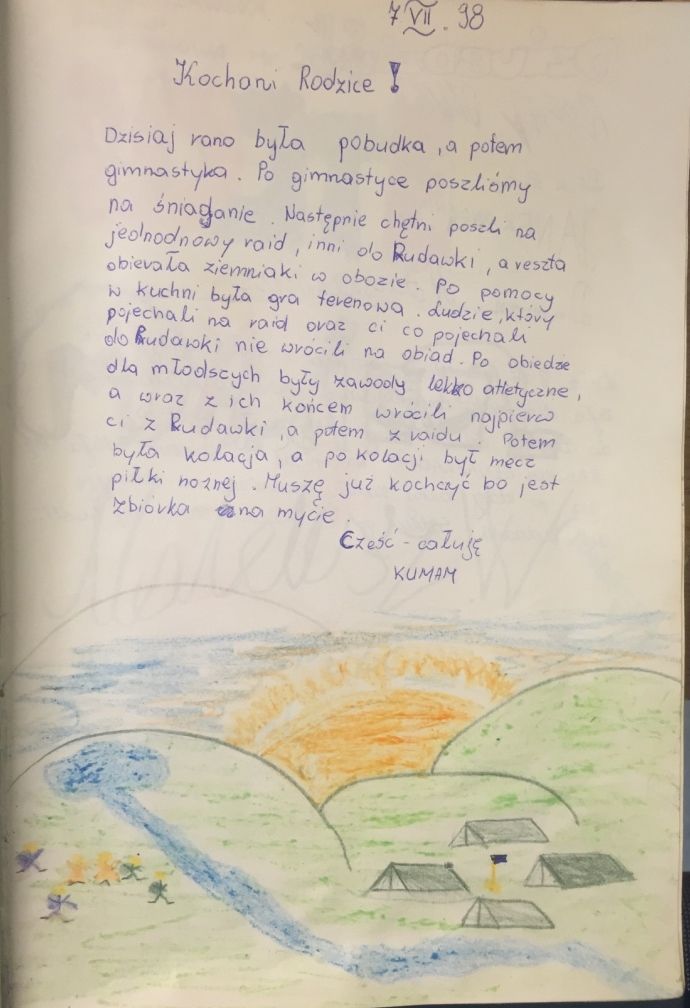 7 VII. 98
Kochani Rodzice!
Dzisiaj rano była pobudka, a potem
gimnastyka. Po gimnastyce poszliśmy
na śniadanie. Następnie chętni poszli na
jednodnowy raid, inni do Rudawki, a reszta
obierała ziemniaki w obozie. Po pomocy
w kuchni była gra terenowa. Ludzie, który
pojechali na raid oraz ci co pojechali
do Rudawki nie wrócili na obiad. Po obiedzie
dla młodszych były zawody lekko atletyczne,
a wraz z ich końcem wrócili najpierw
ci z Rudawki, a potem z raidu. Potem
była kolacja, a po kolacji był mecz
piłki nożnej. Muszę już kochczyć bo jest
zbiórka na mycie.
Cześć - całuję
KUMAM